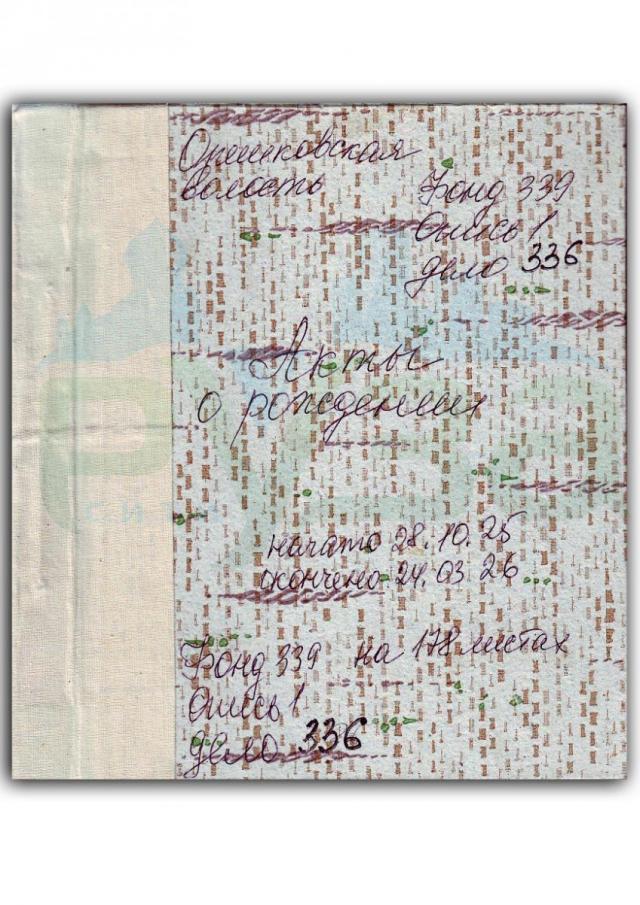 Оршиковская
волость
Фонд 339
Опись 1
дело 336
Акты
о рождении
начато 28.10.25
окончено 24.03 26
Фонд 339 на 178 листах
Опись 1
дело 336